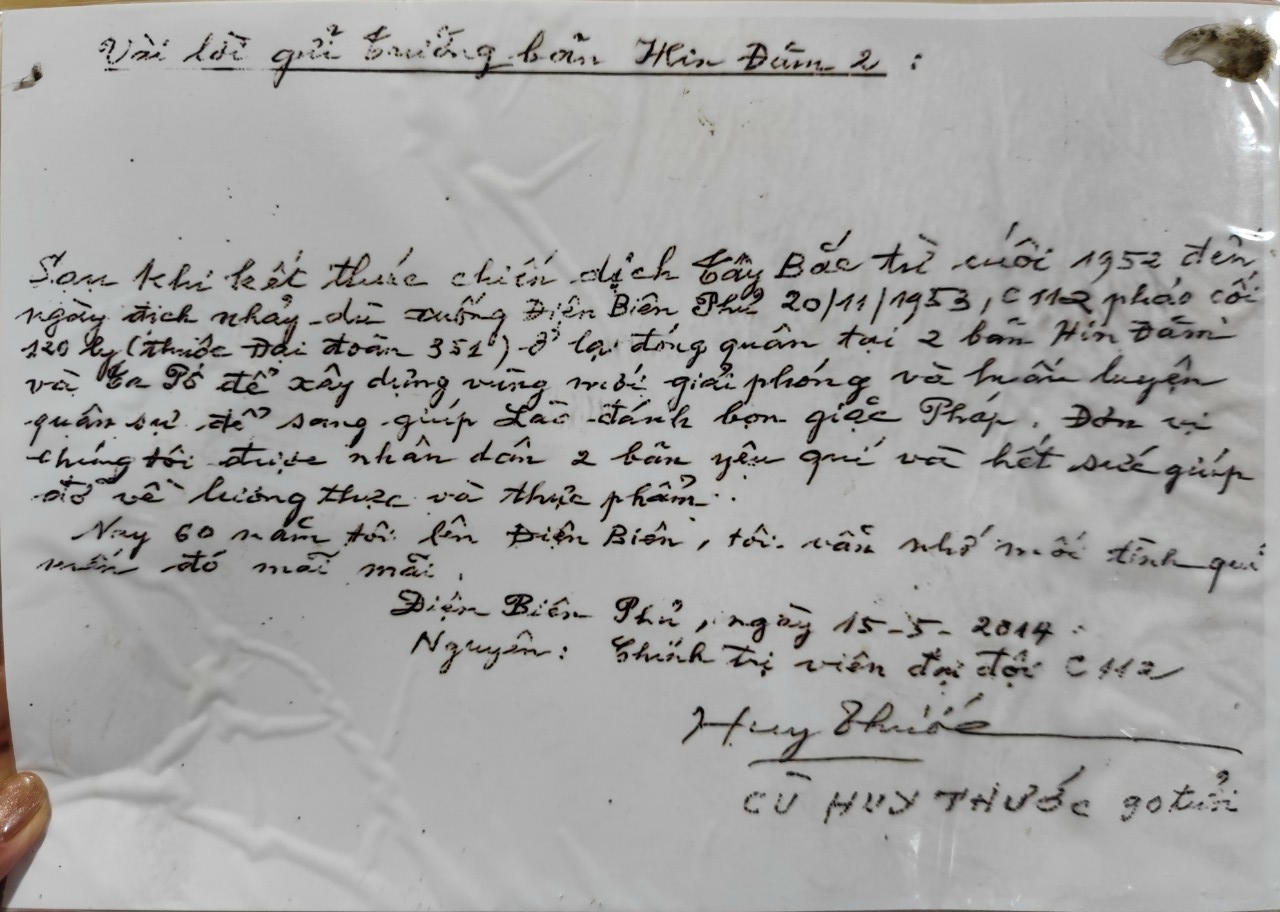 Vài lời gửi trưởng bản Hin Đăm 2 :
Sau khi kết thúc chiến dịch Tây Bắc từ cuối 1952 đến
ngày địch nhảy dù xuống Điện Biên Phủ 20/11/1953, C112 pháo cối
120 ly (thuộc Đại đoàn 351) ở lại đóng quân tại 2 bản Hin Đăm
và Ta Pô để xây dựng vùng mới giải phóng và huấn luyện
quân sự để sang giúp Lào đánh bọn giặc Pháp. Đơn vị
chúng tôi được nhân dân 2 bản yêu quí và hết sức giúp
đỡ về lương thực và thực phẩm.
Nay 60 năm tôi lên Điện Biên, tôi vẫn nhớ mối tình quí
mến đó mãi mãi.
Điện Biên Phủ, ngày 15-5-2014
Nguyên: Chính trị viên đại đội C112
Huy Thước
CÙ HUY THƯỚC 90 tuổi